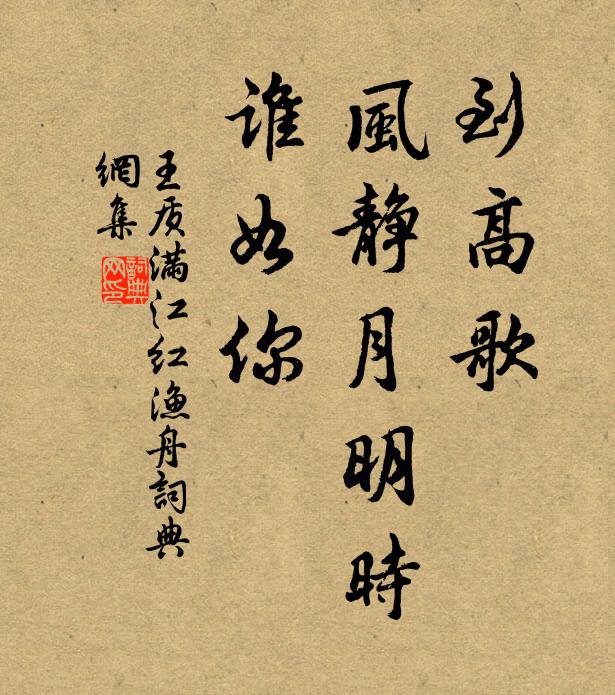 到高歌
風靜月明時
誰如你
王质滿江红漁舟詞典
網集
詞典
网印